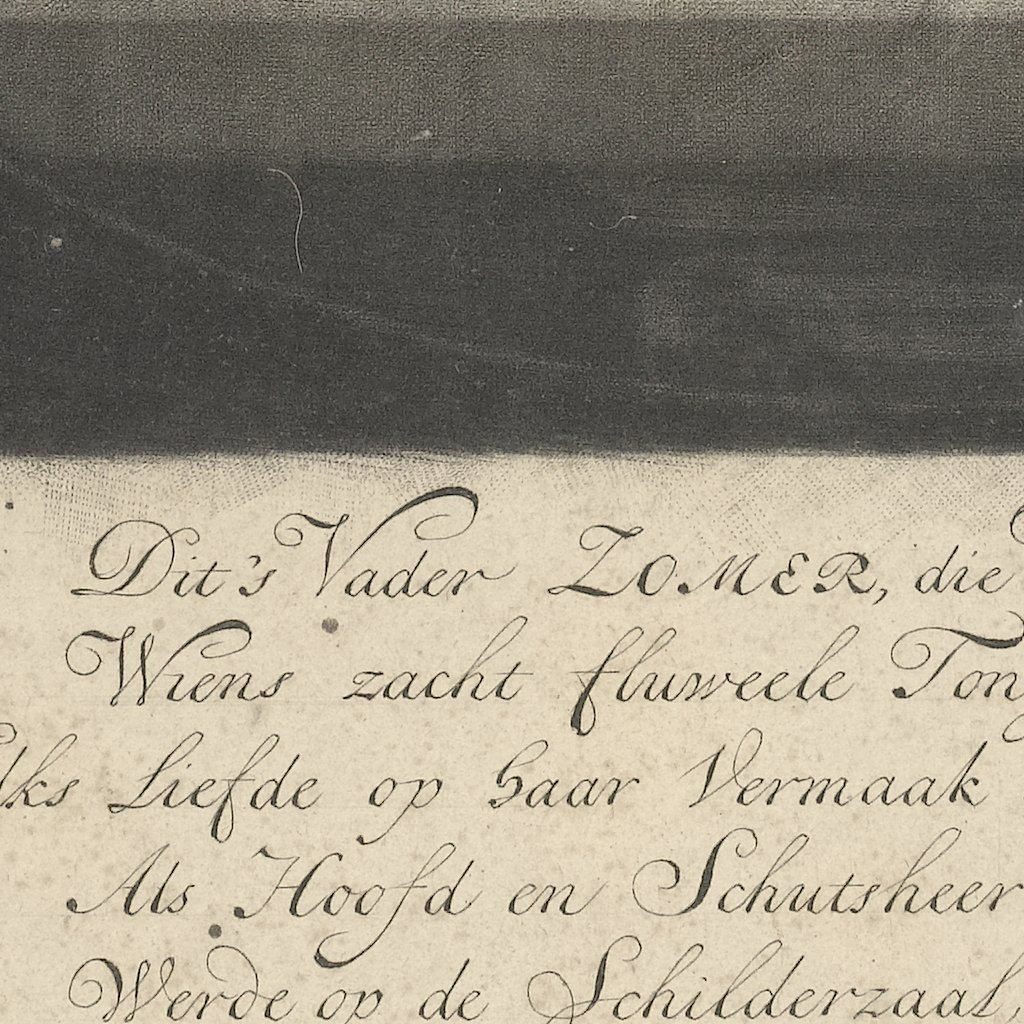 Dit's Vader ZOMER, die
Wiens zacht fluweele Tong
lks Liefde op haar Vermaak
Als Hoofd en Schutsheer
Werde op de Schilderzaal,